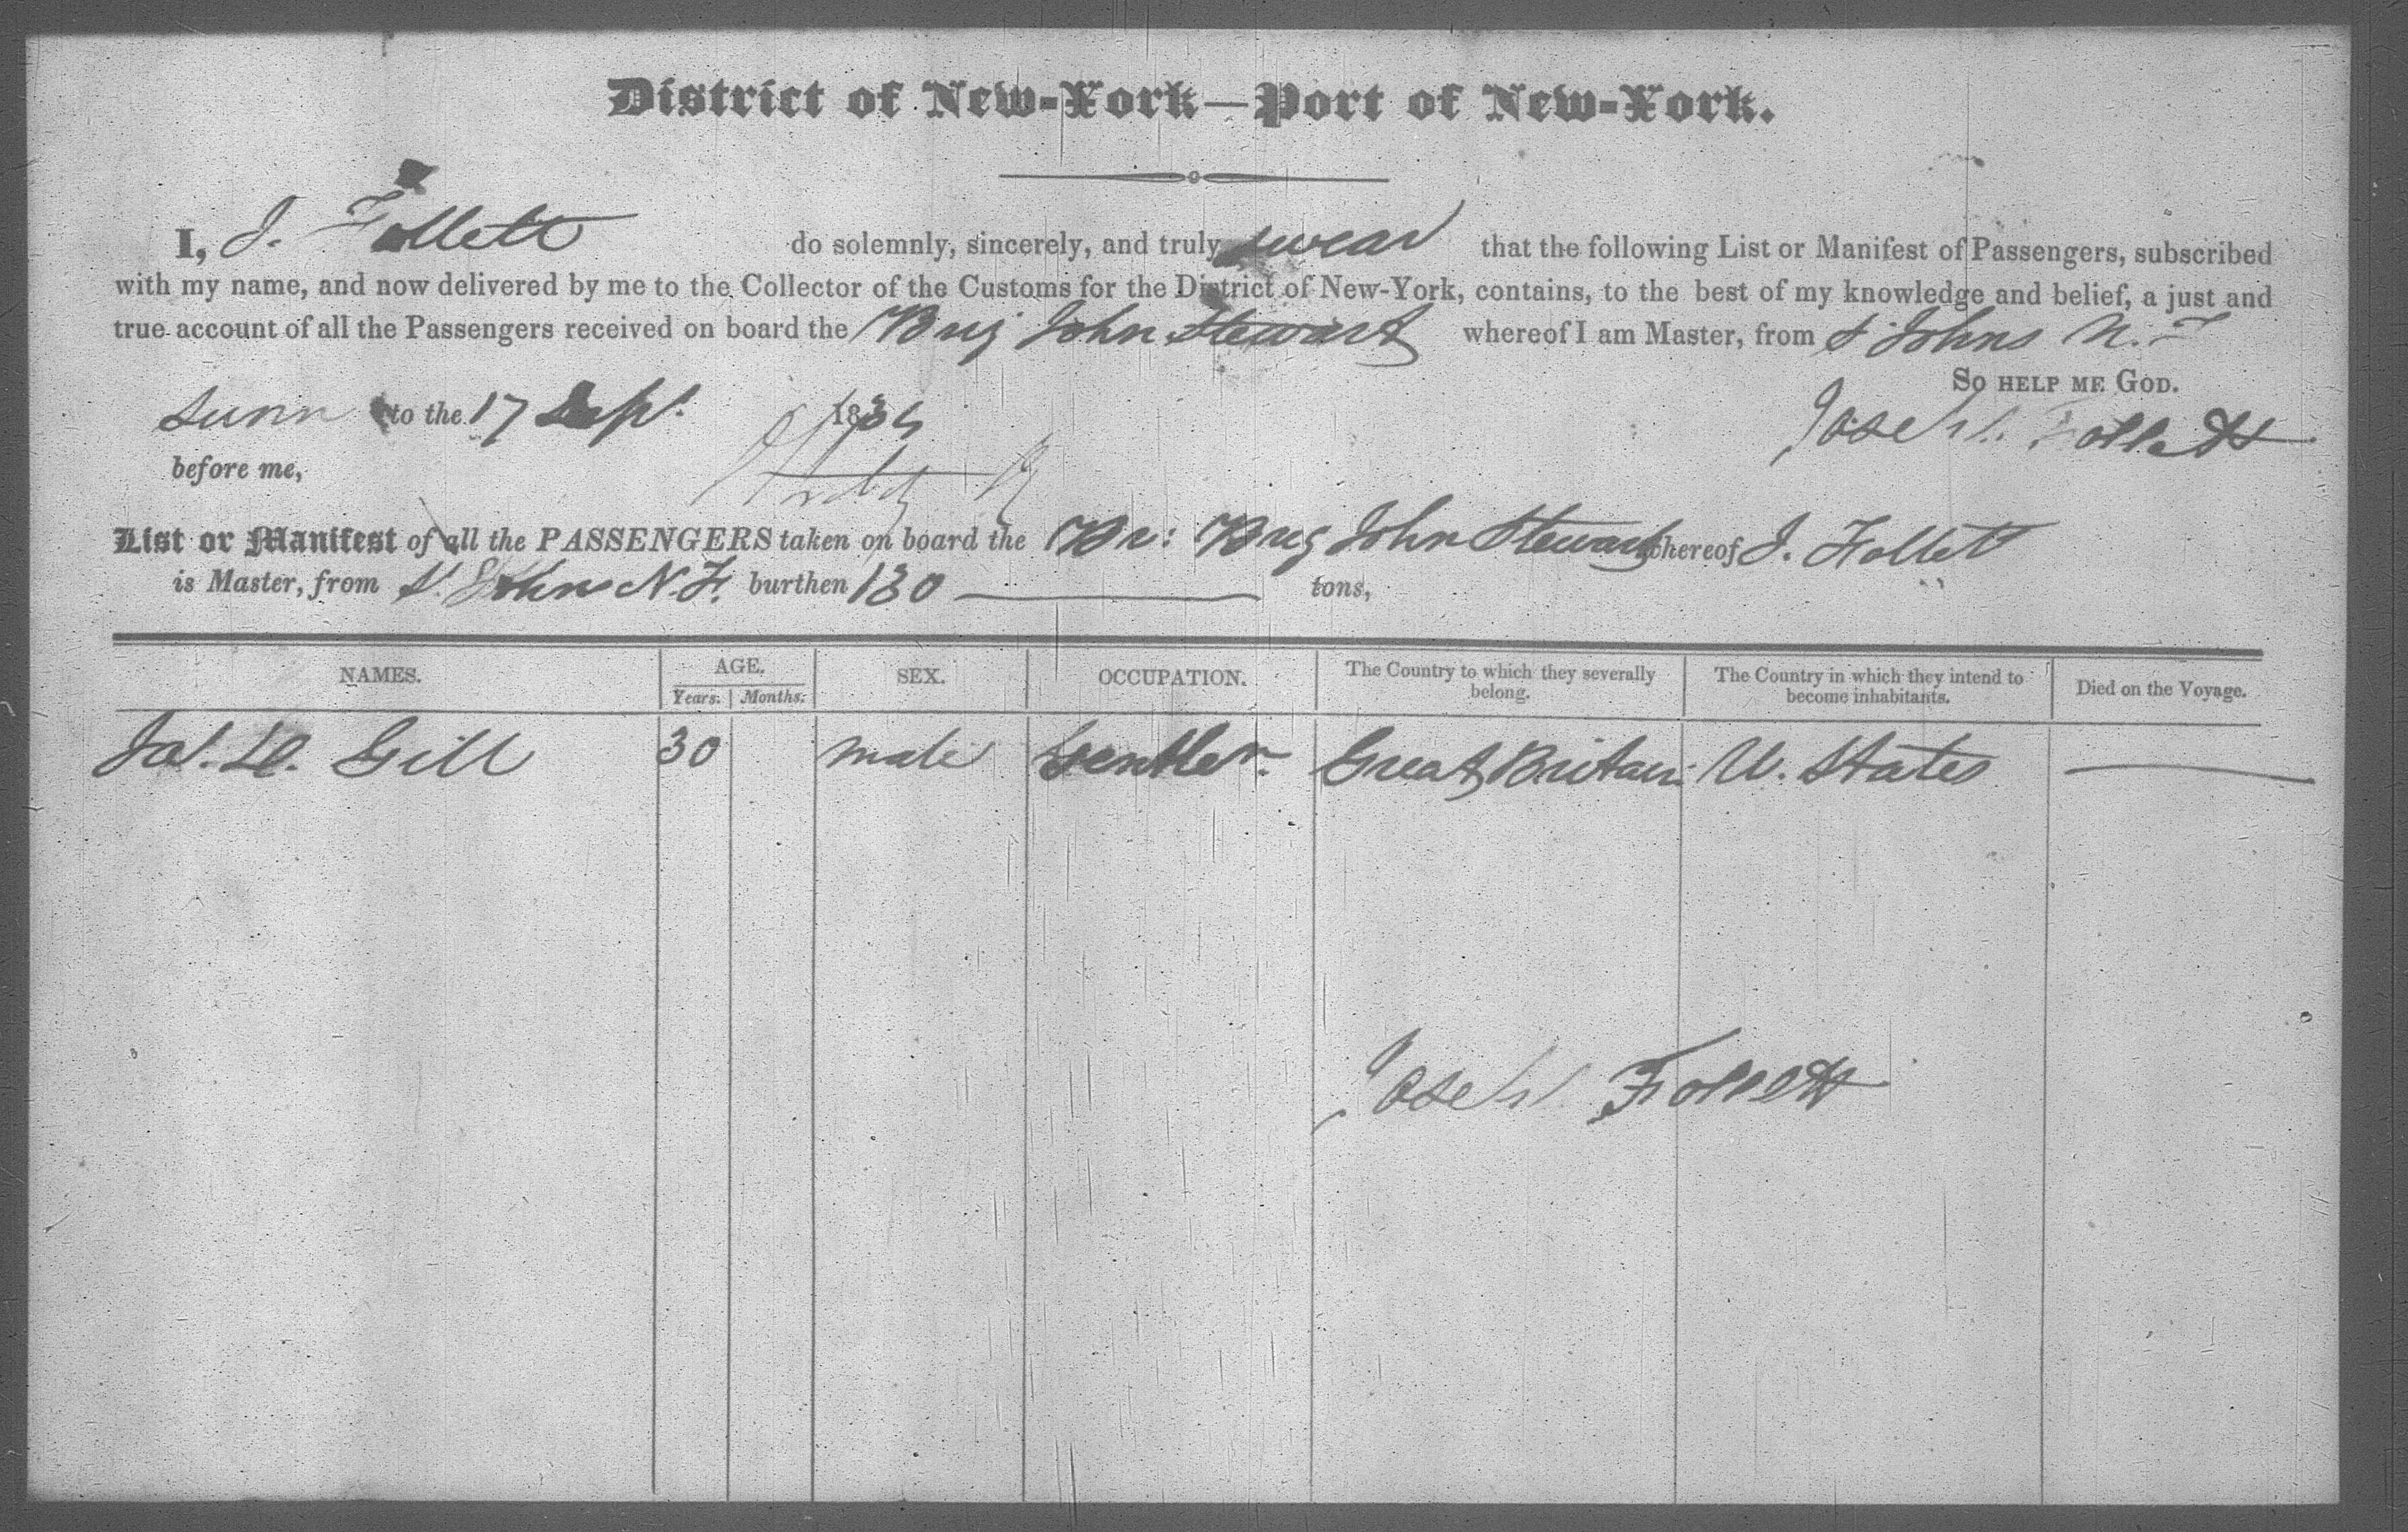 District of New-York—Port of New-York.
I, J. Follett do solemnly, sincerely, and truly swear that the following List or Manifest of Passengers, subscribed
with my name, and now delivered by me to the Collector of the Customs for the District of New-York, contains, to the best of my knowledge and belief, a just and
true account of all the Passengers received on board the Brig John Stewart whereof I am Master, from St Johns N. F
SO HELP ME GOD.
to the 17 Sept. 183
Joseph Follett
before me,
List or Manifest of all the PASSENGERS taken on board the Br: Brig John Stewart whereof J. Follett
is Master, from St. Johns N. F. burthen 130 tons,
NAMES. AGE. SEX. OCCUPATION. The Country to which they severally belong. The Country in which they intend to become inhabitants. Died on the Voyage.
Years. Months.
Gill 30 male Gentler. Great Britain U. States
Joseph Follett